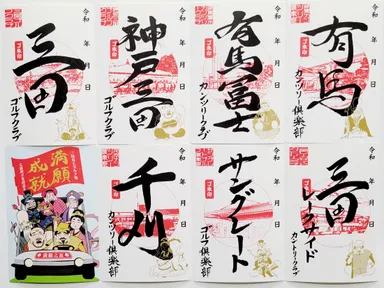 令和 年 月 日
ゴ朱印
三田
ゴルフクラブ
令和 年 月 日
ゴ朱印
神戸三田
ゴルフクラブ
令和 年 月 日
ゴ朱印
有馬冨士
カンツリークラブ
令和 年 月 日
ゴ朱印
有馬
カンツリー倶楽部
満願
成就
令和 年 月 日
ゴ朱印
千刈
カンツリー倶楽部
令和 年 月 日
ゴ朱印
サングレート
ゴルフ倶楽部
令和 年 月 日
ゴ朱印
三田
レークサイド
カントリークラブ